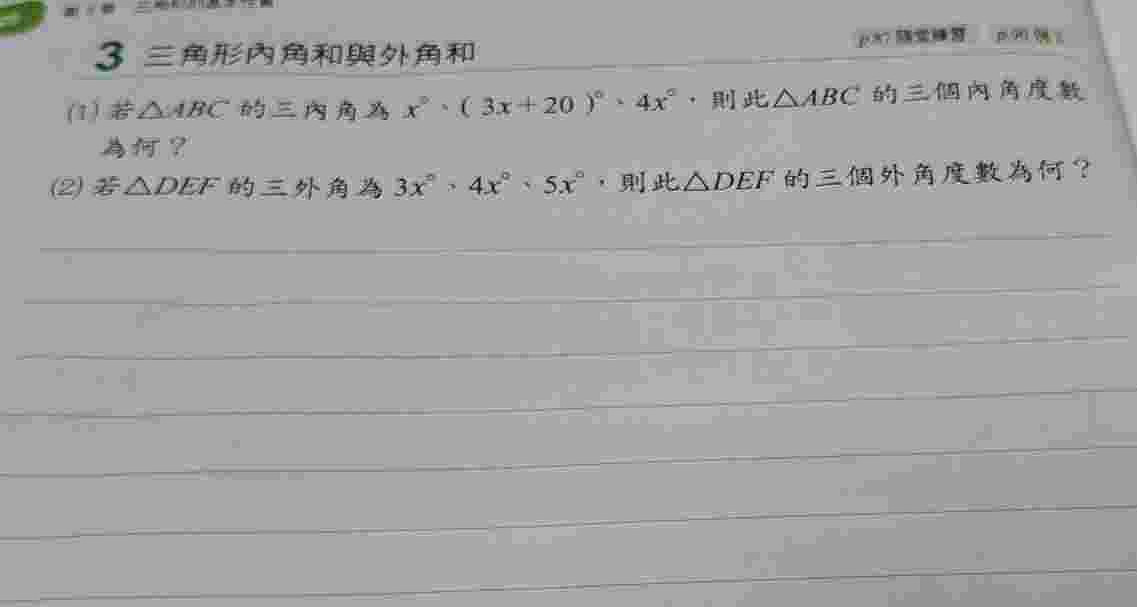 3 三角形內角和與外角和
p.87 隨堂練習 p.90
(1) 若△ABC 的三內角為 x°、( 3x+20 )°、4x°,則此△ABC 的三個內角度數
為何？
(2) 若△DEF 的三外角為 3x°、4x°、5x°,則此△DEF 的三個外角度數為何？